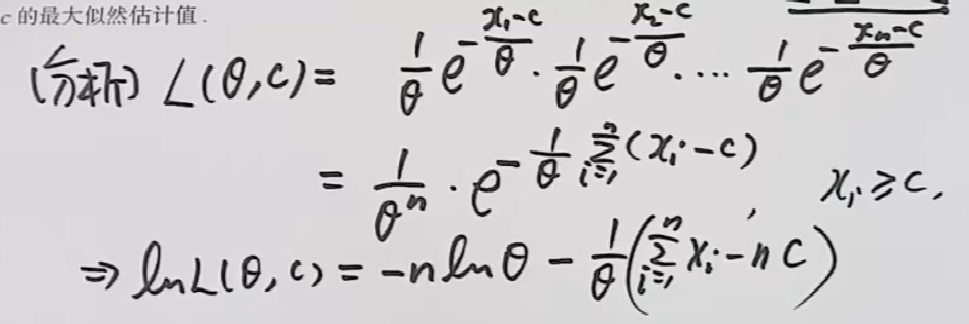 c 的最大似然估计值.
(分析) L(θ,c)= 1/θ e^{-(x₁-c)/θ} · 1/θ e^{-(x₂-c)/θ} .... 1/θ e^{-(xₙ-c)/θ}
= 1/θⁿ · e^{-1/θ ∑_{i=1}^{n}(xᵢ-c)} , xᵢ≥c,
⇒ lnL(θ,c)= -nlnθ - 1/θ(∑_{i=1}^{n} xᵢ-nc)